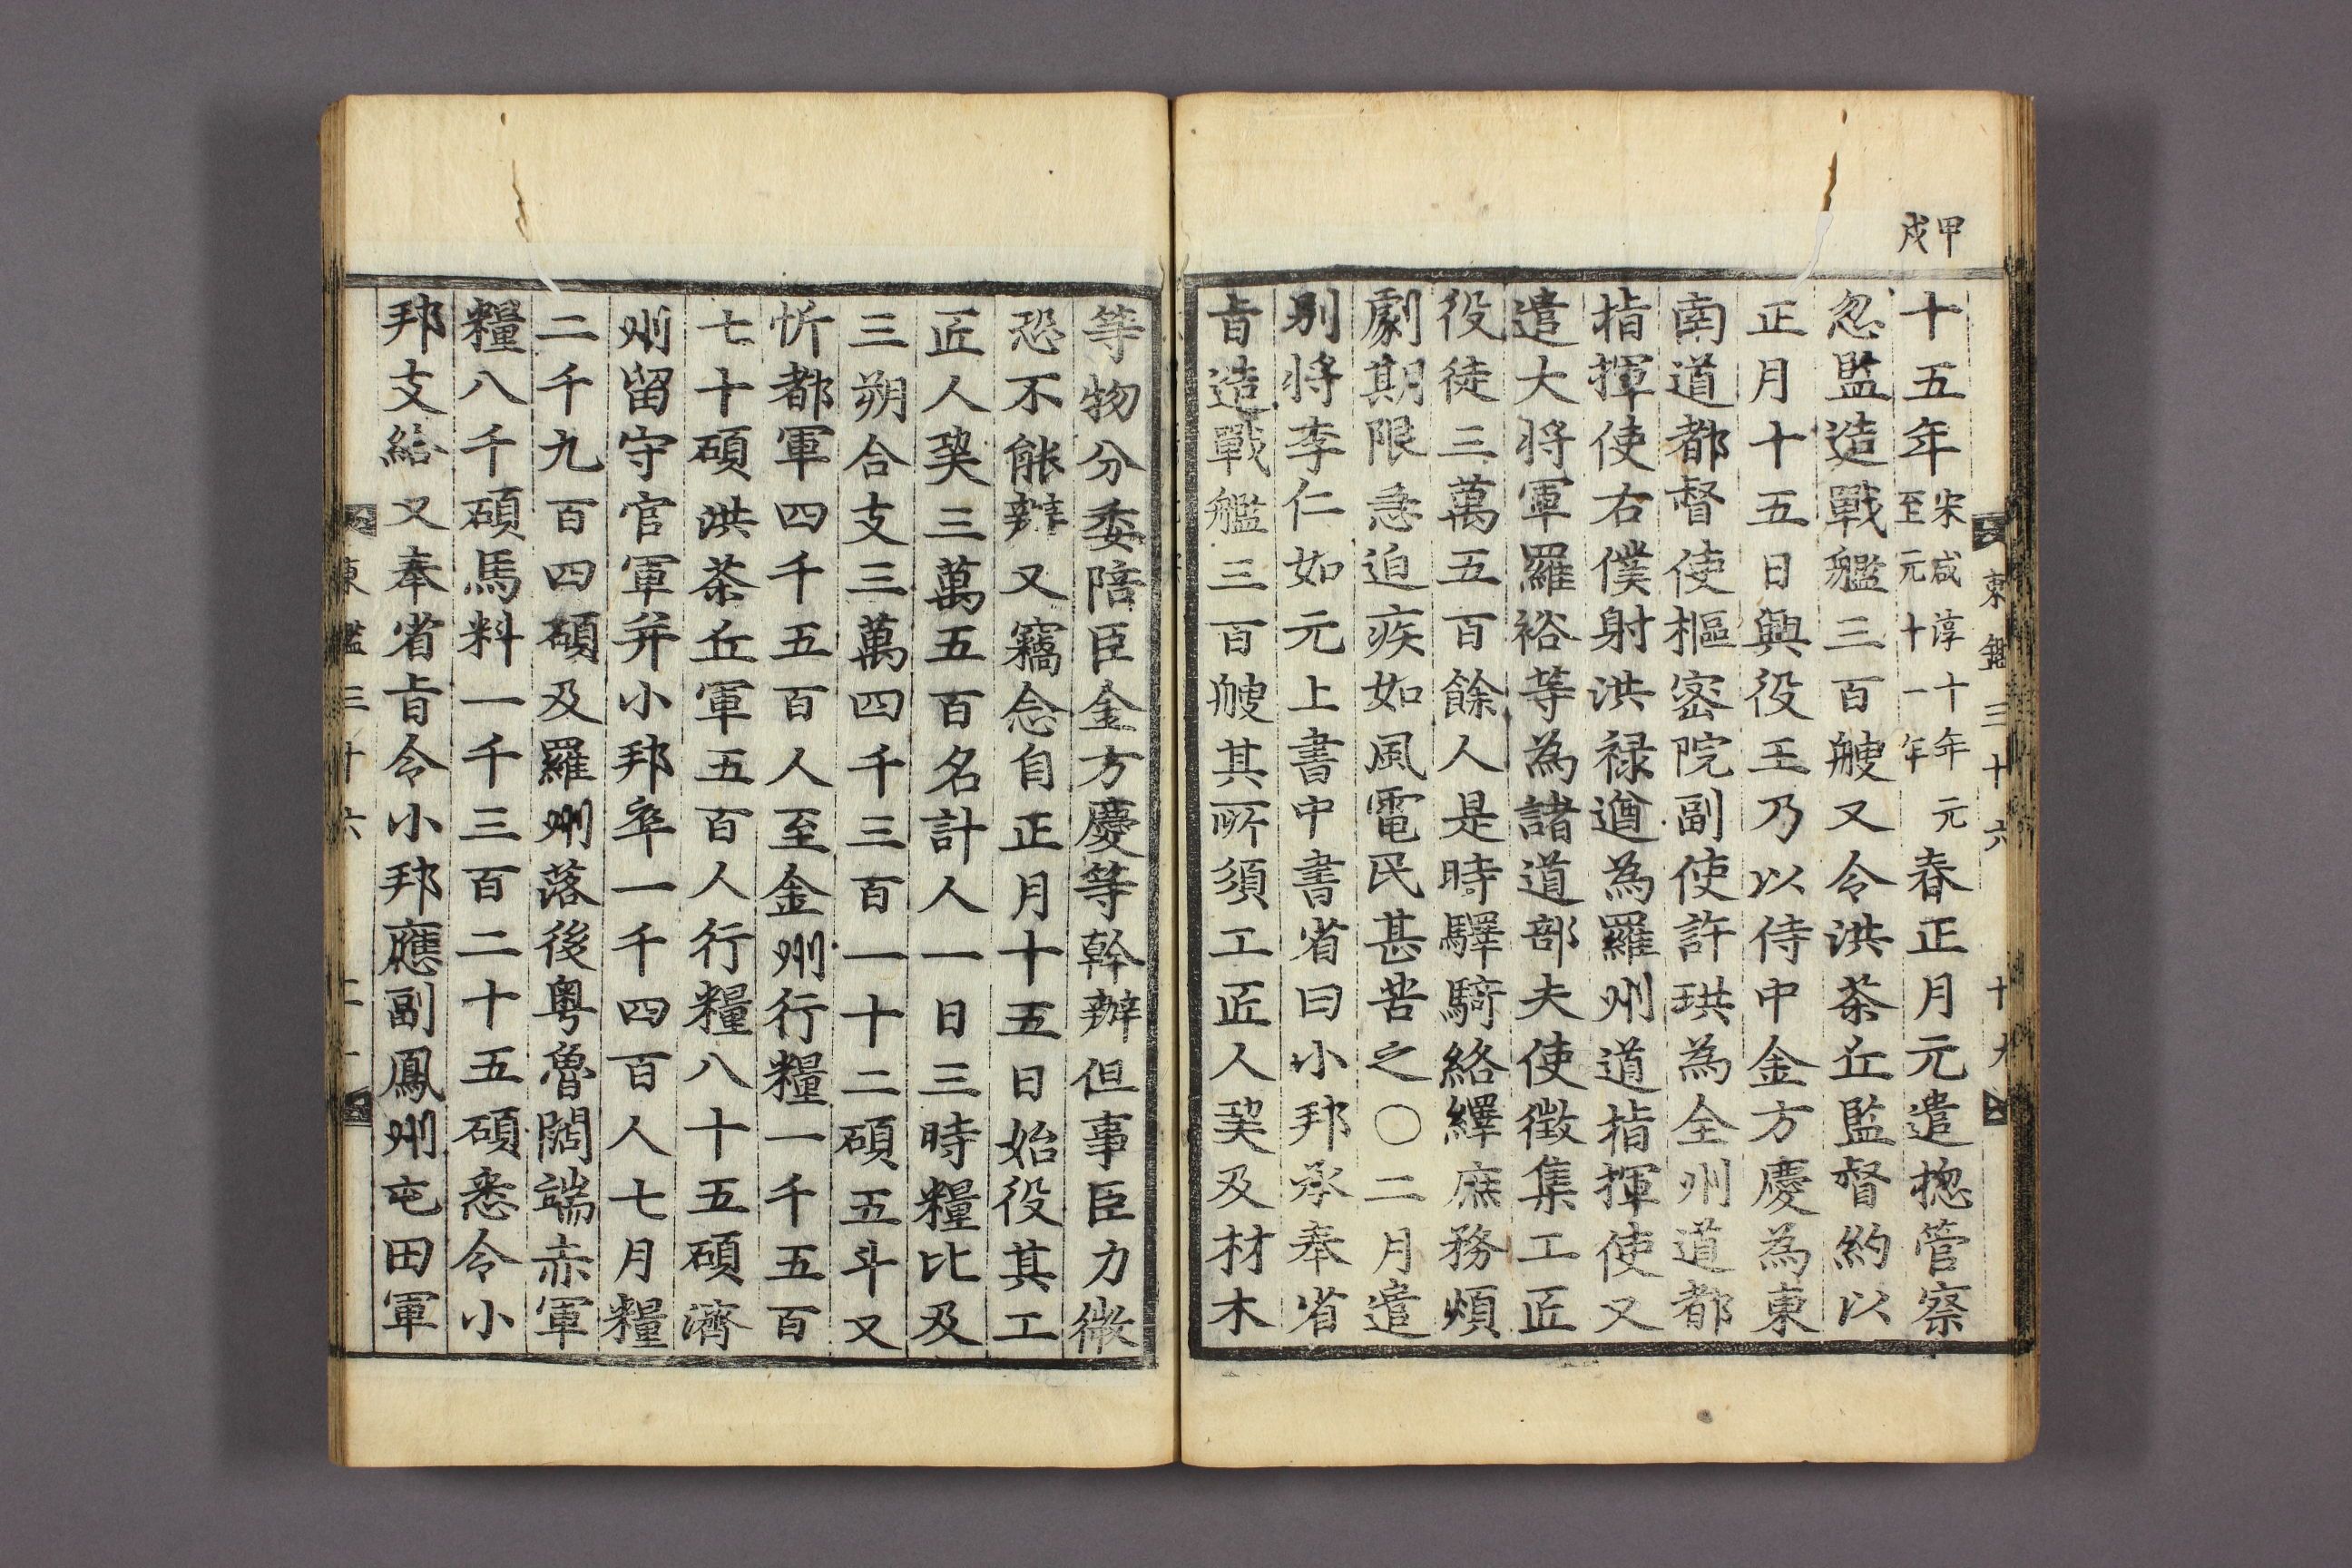 甲戌
東鑑三十六 十九
十五年宋咸淳十年元至元十一年春正月元遣摠管察
忽監造戰艦三百艘又令洪茶丘監督約以
正月十五日興役王乃以侍中金方慶為東
南道都督使樞密院副使許珙為全州道都
指揮使右僕射洪禄遒為羅州道指揮使又
遣大将軍羅裕等為諸道部夫使徵集工匠
役徒三萬五百餘人是時驛騎絡繹庶務煩
劇期限急迫疾如風電民甚苦之〇二月遣
别将李仁如元上書中書省曰小邦承奉省
旨造戰艦三百艘其所須工匠人𤔫及材木
等物分委陪臣金方慶等幹辦但事臣力微
恐不能辦又竊念自正月十五日始役其工
匠人𤔫三萬五百名計人一日三時糧比及
三朔合支三萬四千三百一十二碩五斗又
忻都軍四千五百人至金州行糧一千五百
七十碩洪茶丘軍五百人行糧八十五碩濟
州留守官軍并小邦卒一千四百人七月糧
二千九百四碩及羅州落後粤魯闊端赤軍
糧八千碩馬料一千三百二十五碩悉令小
邦支給又奉省旨令小邦應副鳳州屯田軍
東鑑三十六